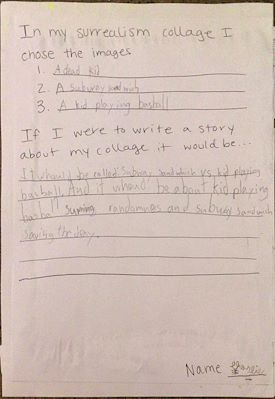 In my surrealism collage I
chose the images
1. A dead kid
2. A subway sandwich
3. A kid playing basball
If I were to write a story
about my collage it would be...
It whould be called: Subway sandwich vs. kid playing
basball. And it whould be about kid playing
basball randomnes and subway sandwich
saving the day.
Name